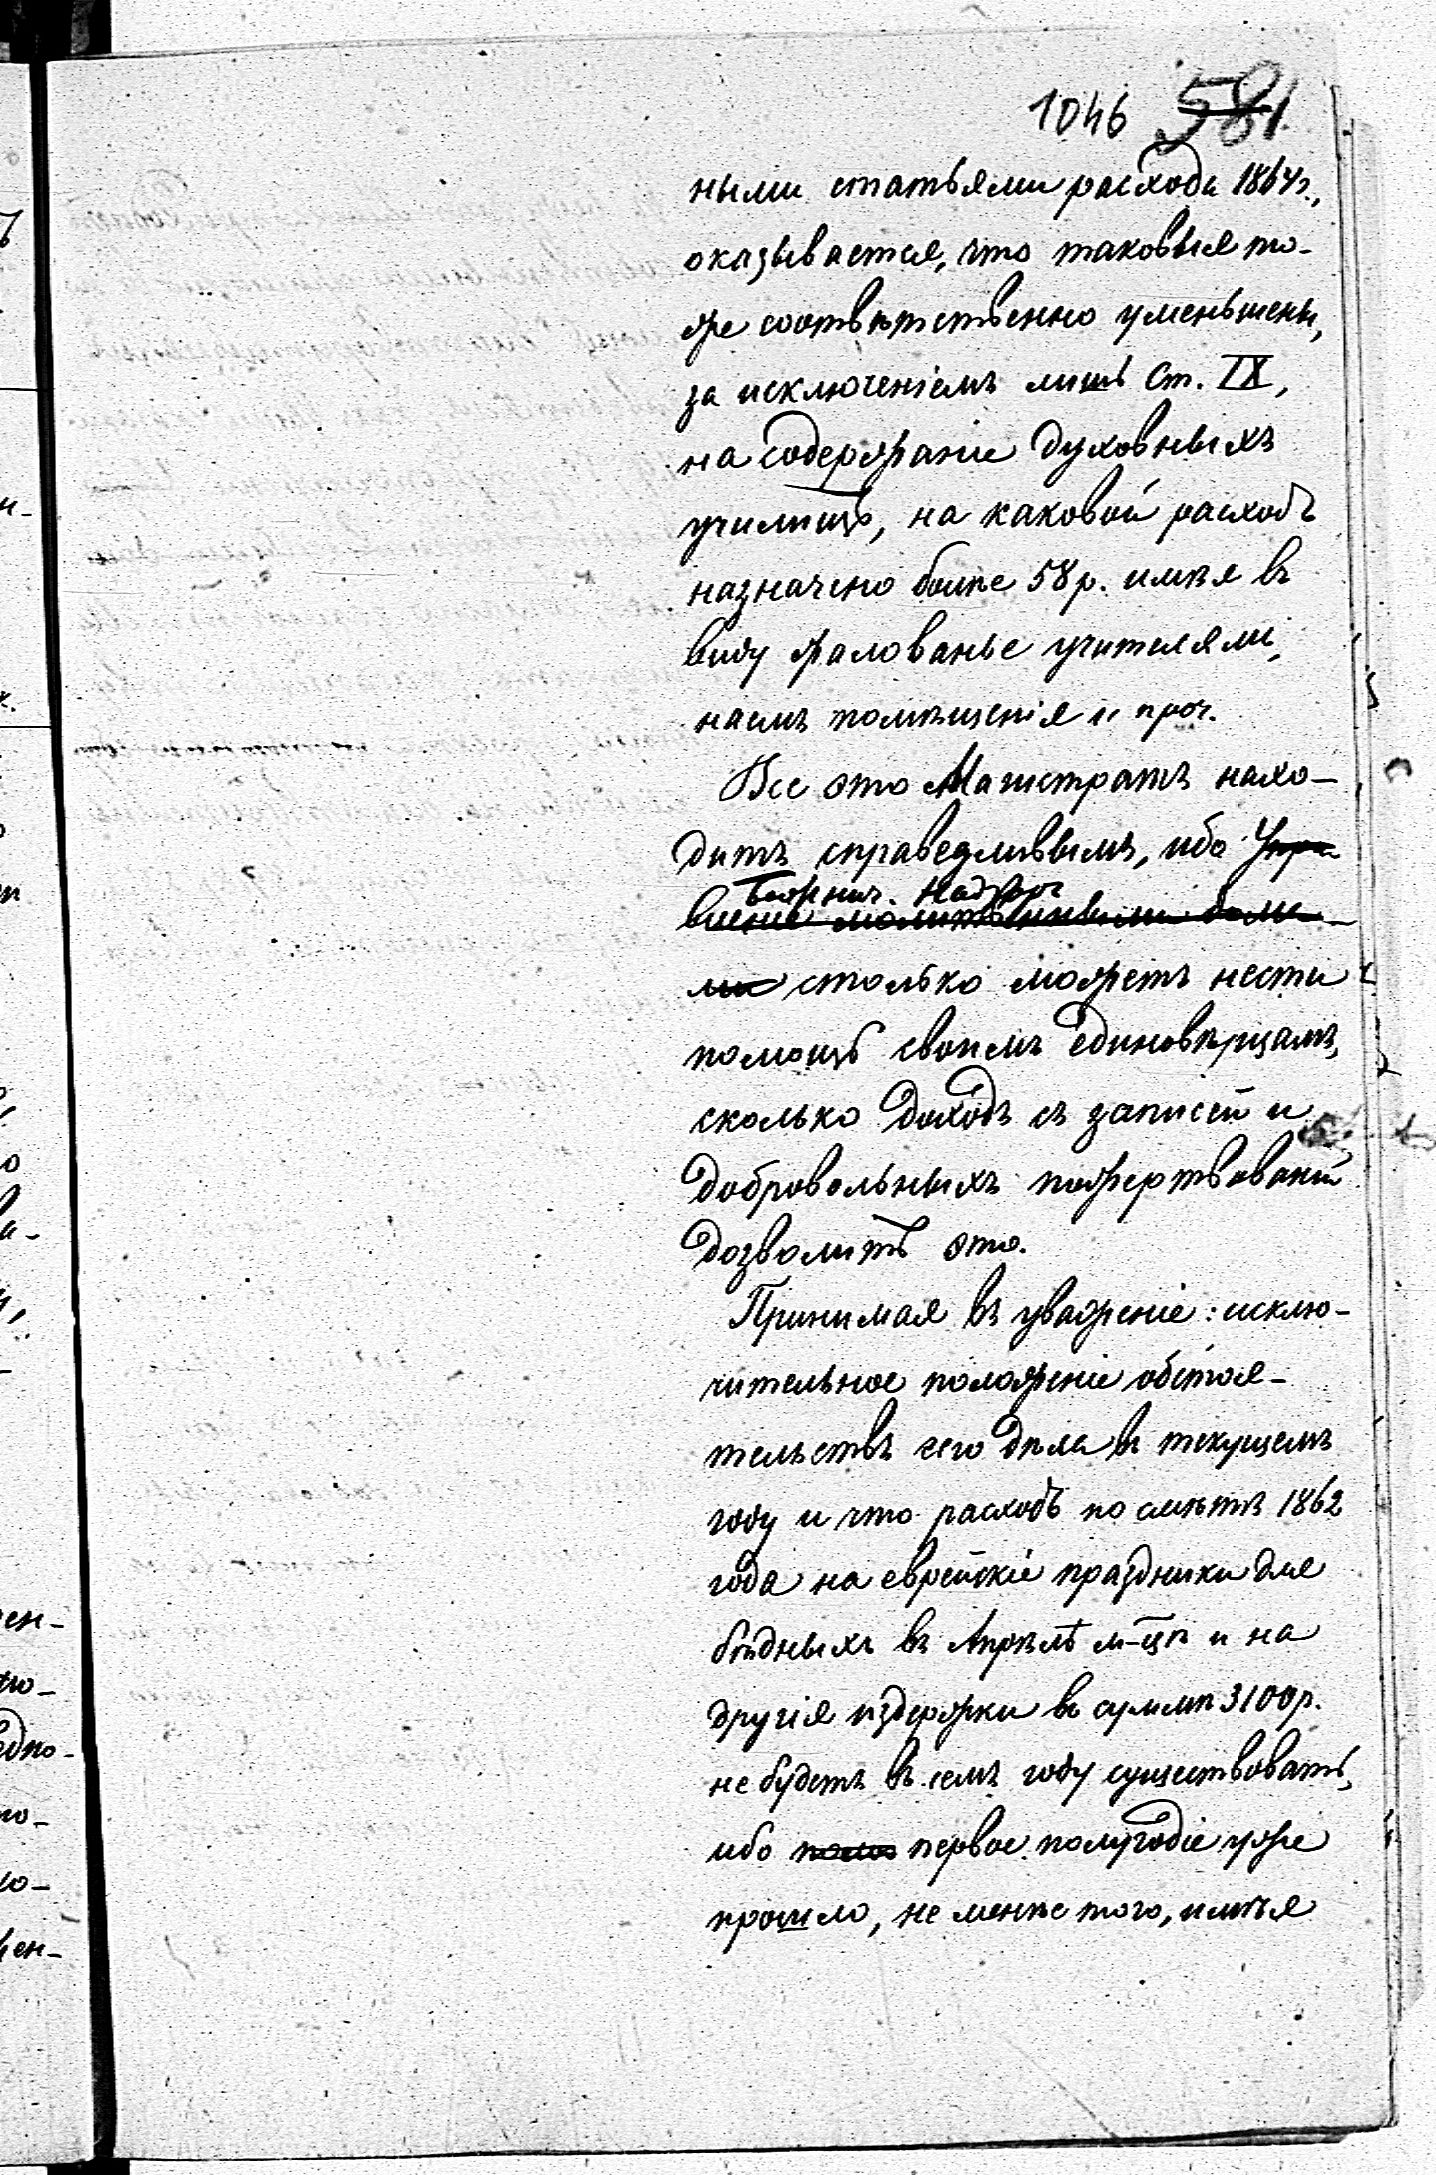 1046 581
ными статьями расхода 1864г.,
оказывается, что таковыя то-
же соотвѣтственно уменьшены,
за исключеніемъ лишь Ст. IX,
на содержаніе духовныхъ
училищъ, на каковой расходъ
назначено болѣе 58 р. имѣя въ
виду жалованье учителями,
наемъ помѣщенія и проч.
Все это Магистратъ нахо-
дитъ справедливымъ, ибо Упра-
Божнич. Надзоръ
вленіе молитвенными дома-
ми столько можетъ нести
помощь своимъ единовѣрцамъ,
сколько доходъ съ записей и
добровольныхъ пожертвованій
дозволитъ это.
Принимая въ уваженіе: исклю-
чительное положеніе обстоя-
тельствъ сего дѣла въ текущемъ
году и что расходъ по смѣтѣ 1862
года на еврейскіе праздники для
бѣдныхъ въ Апрѣлѣ м-цѣ и на
другія издержки въ суммѣ 3100р.
не будетъ въ семъ году существовать,
ибо первое полугодіе уже
прошло, не менѣе того, имѣя